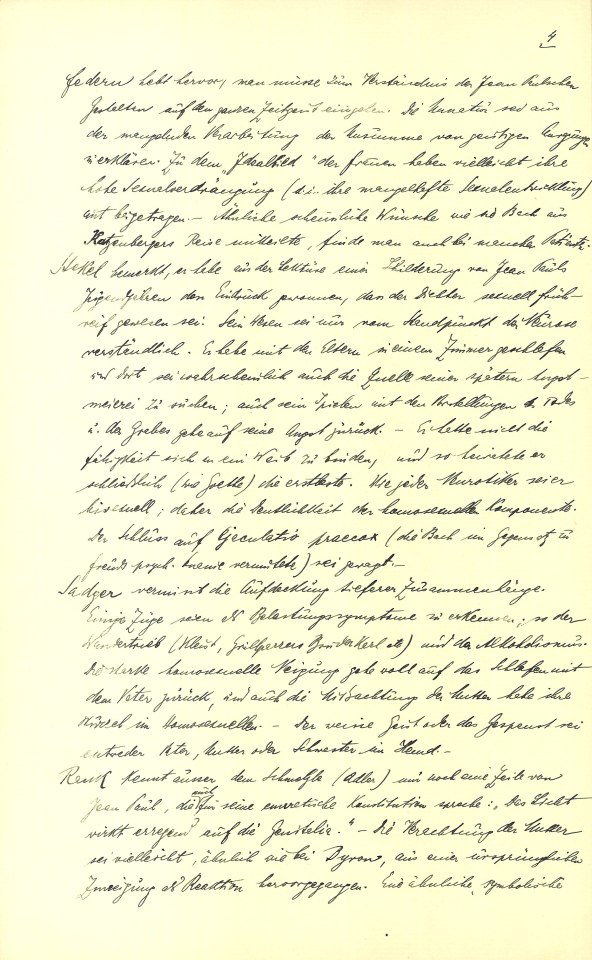 4
Federn hebt hervor, man müsse zum Verständnis der Jean Paulschen
Gestalten auf den ganzen Zeitgeist eingehen. Die Unnatur sei aus
der mangelnden Verarbeitung der Unsumme von geistigen Anregungen
zu erklären. Zu dem „Idealbild" der Frauen haben vielleicht ihre
hohe Sexualverdrängung (d.i. ihre mangelhafte Sexualentwicklung)
mit beigetragen. – Ähnliche scheussliche Wünsche wie sie Bach aus
Katzenbergers Reise mitteilte, finde man auch bei mancher
Stekel bemerkt, er habe aus der Lektüre einer Schilderung von Jean Pauls
Jugendjahren den Eindruck gewonnen, dass der Dichter sexuell früh-
reif gewesen sei. Sein Wesen sei nur vom Standpunkt der Neurose
verständlich. Er habe mit den Eltern in einem Zimmer geschlafen
und dort sei wahrscheinlich auch die Quelle seiner spätern Angst-
meierei zu suchen; auch sein Spielen mit den Vorstellungen des Todes
u. des Grabes gehe auf seine Angst zurück. – Er hatte nicht die
Fähigkeit sich an ein Weib zu binden, und so heiratete er
schliesslich (wie Goethe) die erstbeste. Wie jeder Neurotiker sei er
bisexuell; daher die Deutlichkeit der homosexuellen Komponente.
Der Schluss auf Ejaculatio praecox (die Bach im Gegensatz zu
Freuds psych. vermutete) sei gewagt. –
Sadger vermisst die Aufdeckung tieferer Zusammenhänge.
Einige Züge seien als Belastungssymptome zu erkennen; so der
Wandertrieb (Kleist, Grillparzers Bruder Karl etc) und der Alkoholismus.
Die starke homosexuelle Neigung gehe wohl auf das Schlafen mit
dem Vater zurück, und auch die Missachtung der Mutter habe ihre
Wurzel im Homosexuellen. – Der weisse Geist oder das Gespenst sei
entweder Vater, Mutter oder Schwester im Hemd. –
Rank kennt ausser dem Schmelzle (Adler) nur noch eine Zeile von
Jean Paul, die auch für seine neurotische Konstitution spreche: „Das Licht
wirkt erregend auf die Genitalia." – Die Verachtung der Mutter
sei vielleicht, ähnlich wie bei Byron, aus einer ursprünglichen
Zuneigung als Reaktion hervorgegangen. Eine ähnliche, symbolische